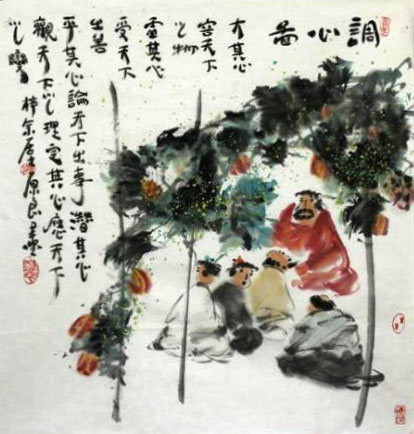 調心啚
大其心
容天下
之物
虛其心
受天下
之善
平其心論天下之事潛其心
觀天下之理定其心應天下
之變
居士原良